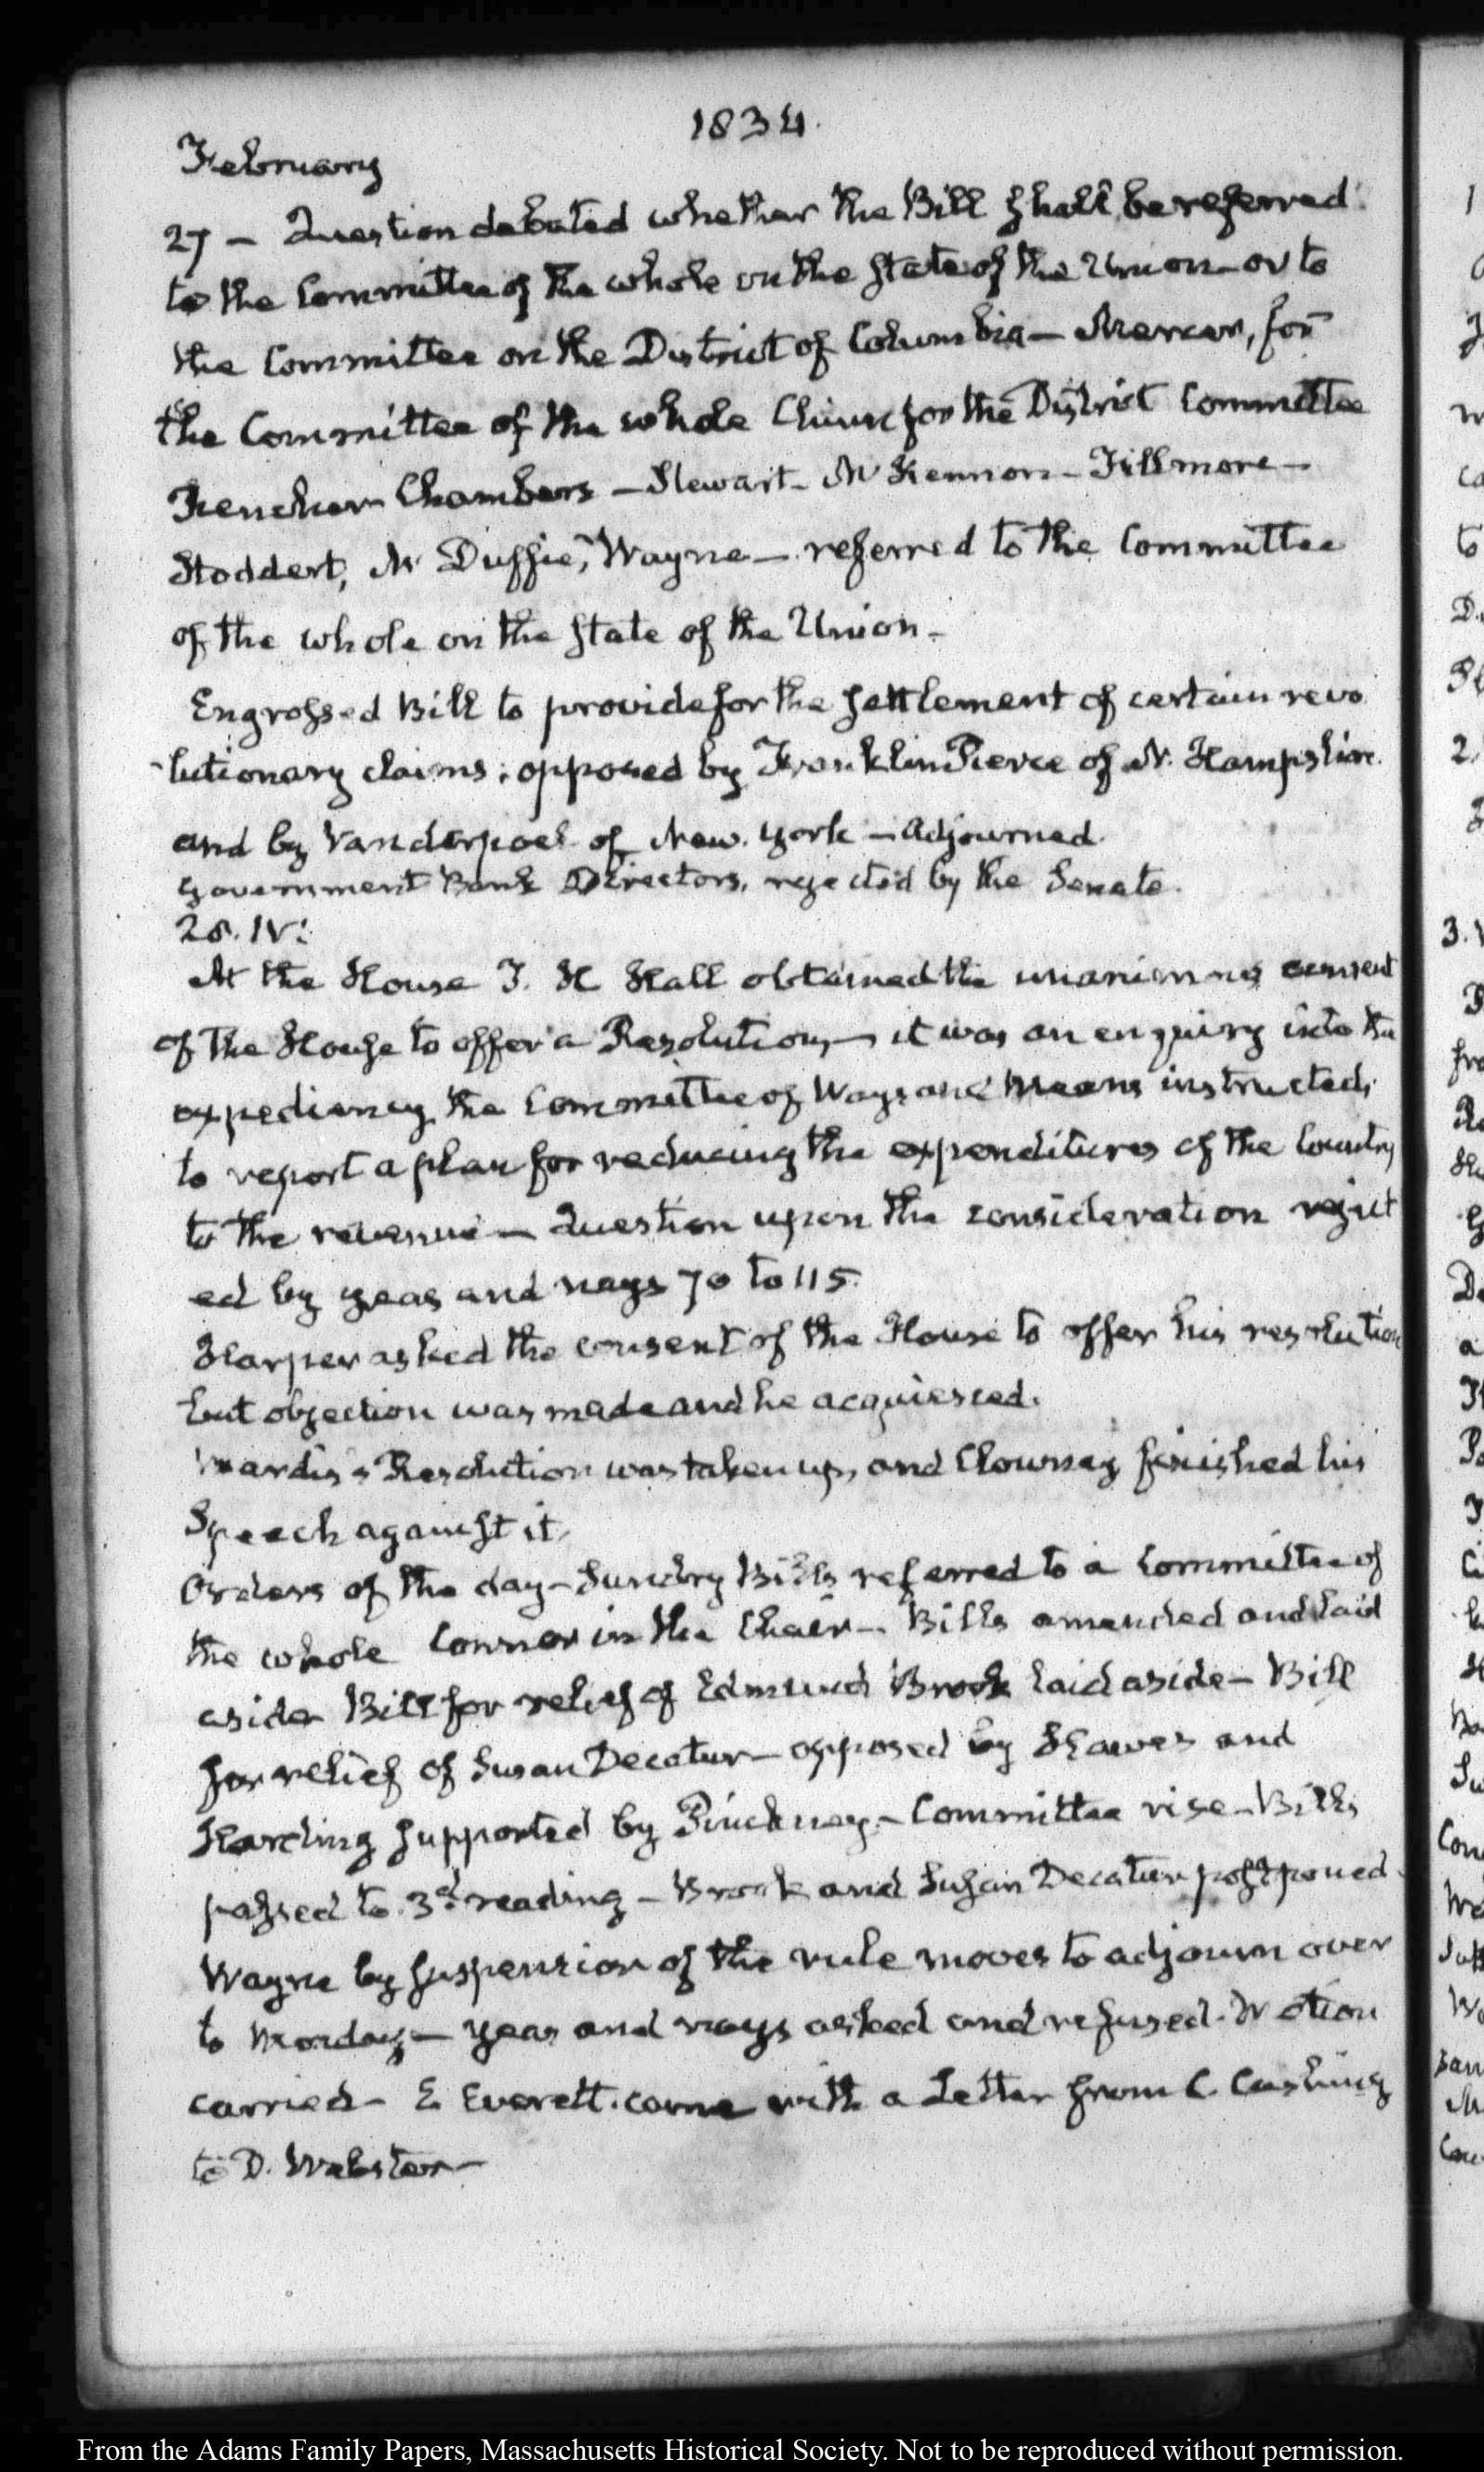 1834.
February
27 – Question debated whether the Bill shall be referred
to the Committee of the whole on the state of the Union – or to
the Committee on the District of Columbia – Mercer, for
the Committee of the whole Chinn for the District Committee
Rencher Chambers – Stewart – McKennon – Fillmore –
Stoddert, Mc Duffie, Wayne – referred to the Committee
of the whole on the state of the Union –
Engrossed Bill to provide for the settlement of certain revo
lutionary claims; opposed by Franklin Pierce of N. Hampshire.
and by Vanderpoel of New York – Adjourned.
Government Bank Directors, rejected by the Senate.
28. IV:
At the House T. H Hall obtained the unanimous consent
of the House to offer a Resolution, – it was an enquiry into the
expediency the Committee of Ways and Means instructed,
to report a plan for reducing the expenditures of the Country
to the revenue – Question upon the consideration reject
ed by yeas and nays 70 to 115.
Harper asked the consent of the House to offer his resolution
but objection was made and he acquiesced.
Mardis's Resolution was taken up, and Clowney finished his
Speech against it
Orders of the day – Sundry Bills referred to a Committee of
the whole Connor in the Chair – Bills amended and laid
aside – Bill for relief of Edmund Brook laid aside – Bill
for relief of Susan Decatur – opposed by Hawes and
Harding supported by Pinckney – Committee rise – Bills
passed to 3d. reading – Brook and Susan Decatur postponed.
Wayne by suspension of the rule moves to adjourn over
to Monday – yeas and nays asked and refused. Motion
carried – E. Everett. came with a Letter from C. Cushing
to D. Webster –
From the Adams Family Papers, Massachusetts Historical Society. Not to be reproduced without permission.